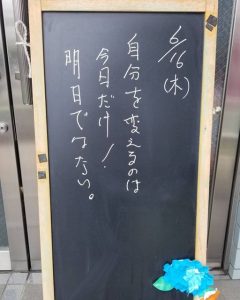 6/16(木)
自分を変えるのは
今日だけ!
明日でなない。